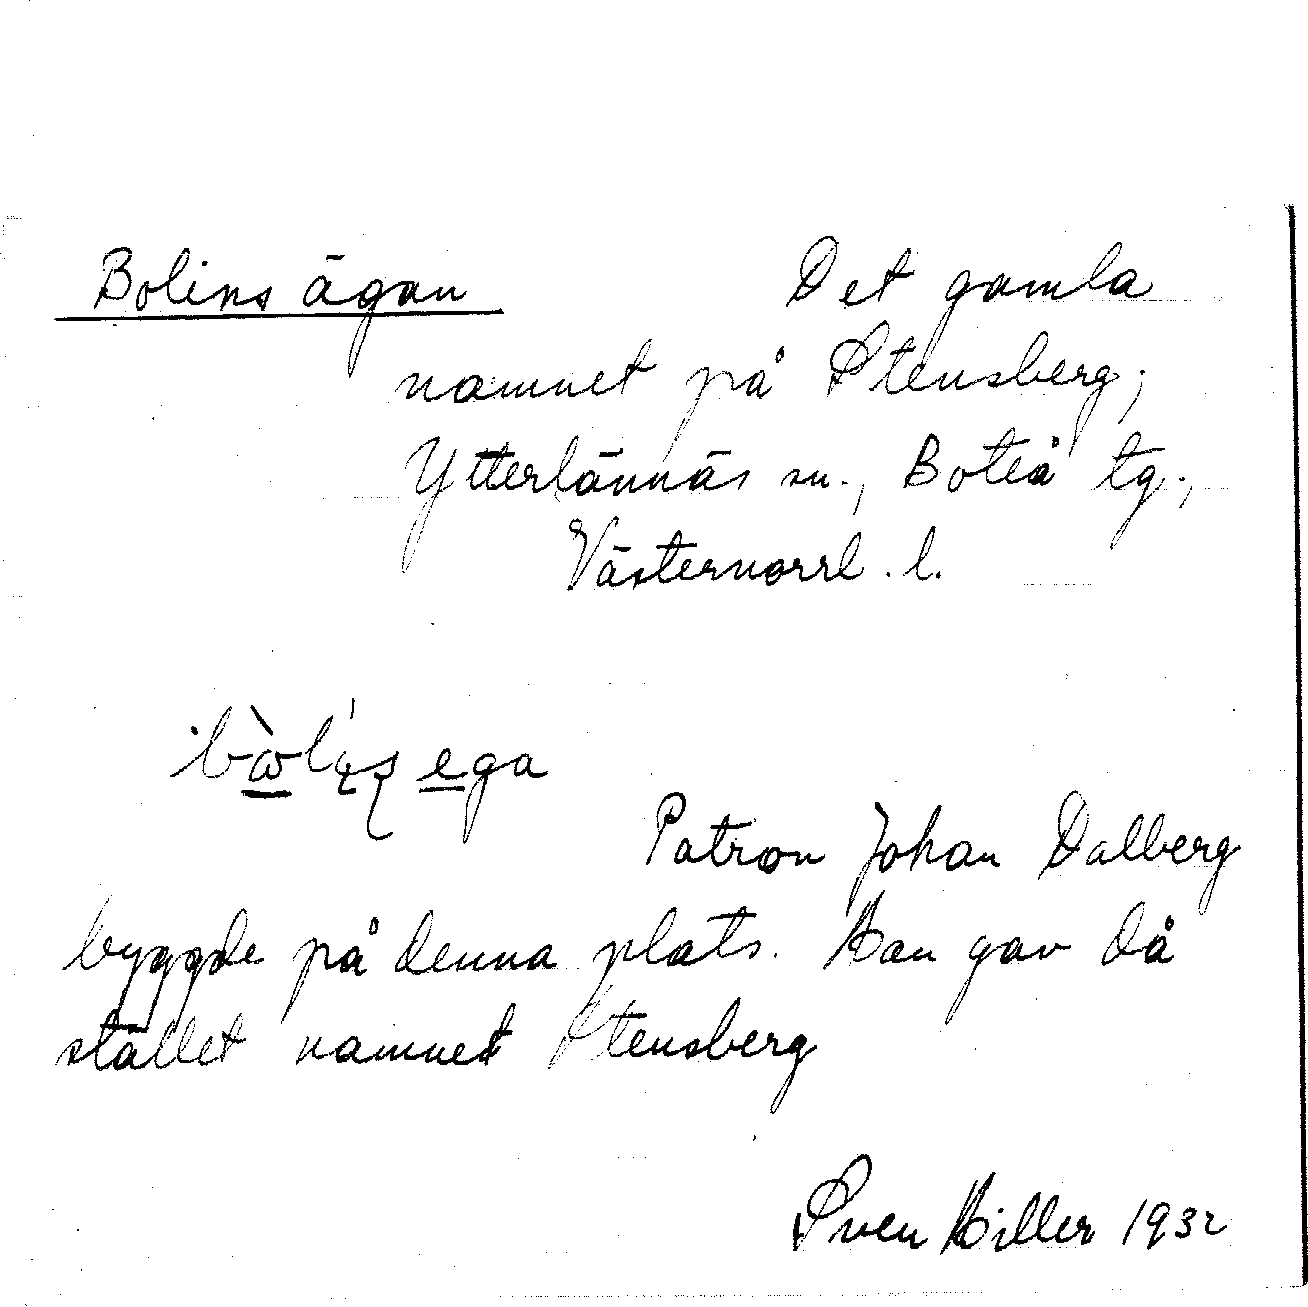 Bolins ägan Det gamla
namnet på Stensberg;
Ytterlännäs sn., Boteå tg.,
Västernorrl. l.
ega
Patron Johan Dalberg
byggde på denna plats. Han gav då
stället namnet Stensberg
Sven Hiller 1932